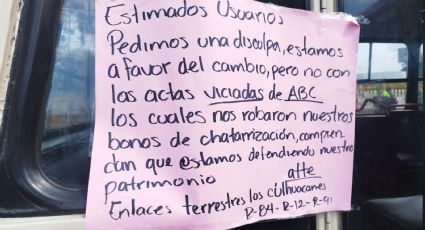 Estimados Usuarios
Pedimos una disculpa, estamos
a favor del cambio, pero no con
las actas viciadas de ABC
los cuales nos robaron nuestros
bonos de chatarrización, compren
dan que estamos defendiendo nuestro
patrimonio atte
Enlaces terrestres los culhuacanes
R-84-R-12-R-91